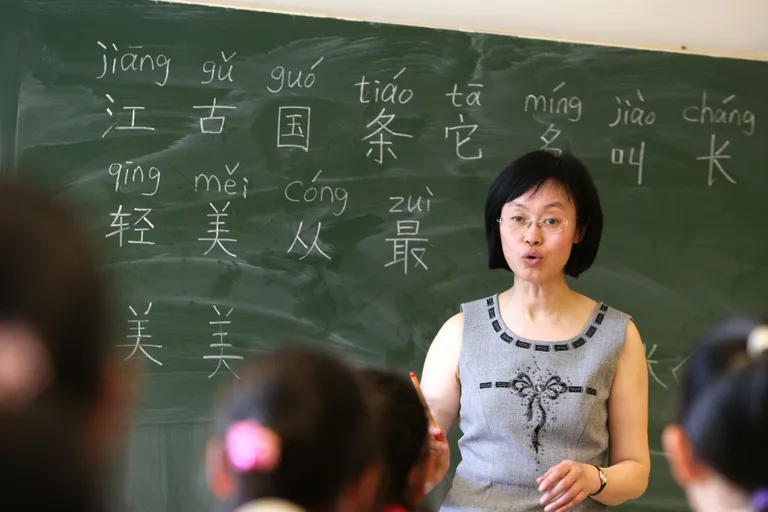 jiāng gǔ guó tiáo tā míng jiào cháng
江 古 国 条 它 名 叫 长
qīng měi cóng zuì
轻 美 从 最
美 美